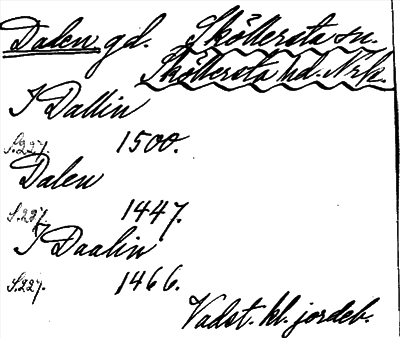 Dalen gd. Sköllersta sn.
Sköllersta hd. Nrk.
I Dallin
S.227. 1500.
Dalen
S.227. 1447.
I Daalin
S.227. 1466.
Vadst. kl. jordeb.